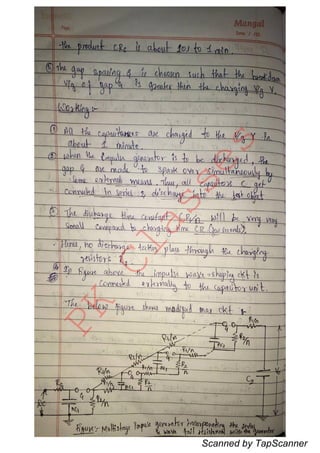 Page
Mangal
Date / /20
The product CRs is about 10s to 1 min.
⑥ The gap spacing G is choosen such that the breakdown
V/g of gap G is greater then the charging V/g V.
Working :-
① All the capacitances are charged to the V/g V in
about 1 minute.
② When the impulse generator is to be discharged, the
gap G are made to spark over simultaneously by
some external means. Thus, all capacitors C get
connected in series & discharge into the test object
③ The discharge time constant CR₁/n will be very very
small compared to charging time CR (few seconds).
Hence, no discharge takes place through the charging
resistors Rs.
④ In figure above the impulse wave-shaping ckt is
connected externally to the capacitor unit.
The below figure shows modified max ckt :-
PK Classes
R₁/n
R₂/n
G
NC₁
C₂
V₀
DC
figure:- Multistage Impulse generator incorporating the series
& wave tail resistances within the generator
Scanned by TapScanner